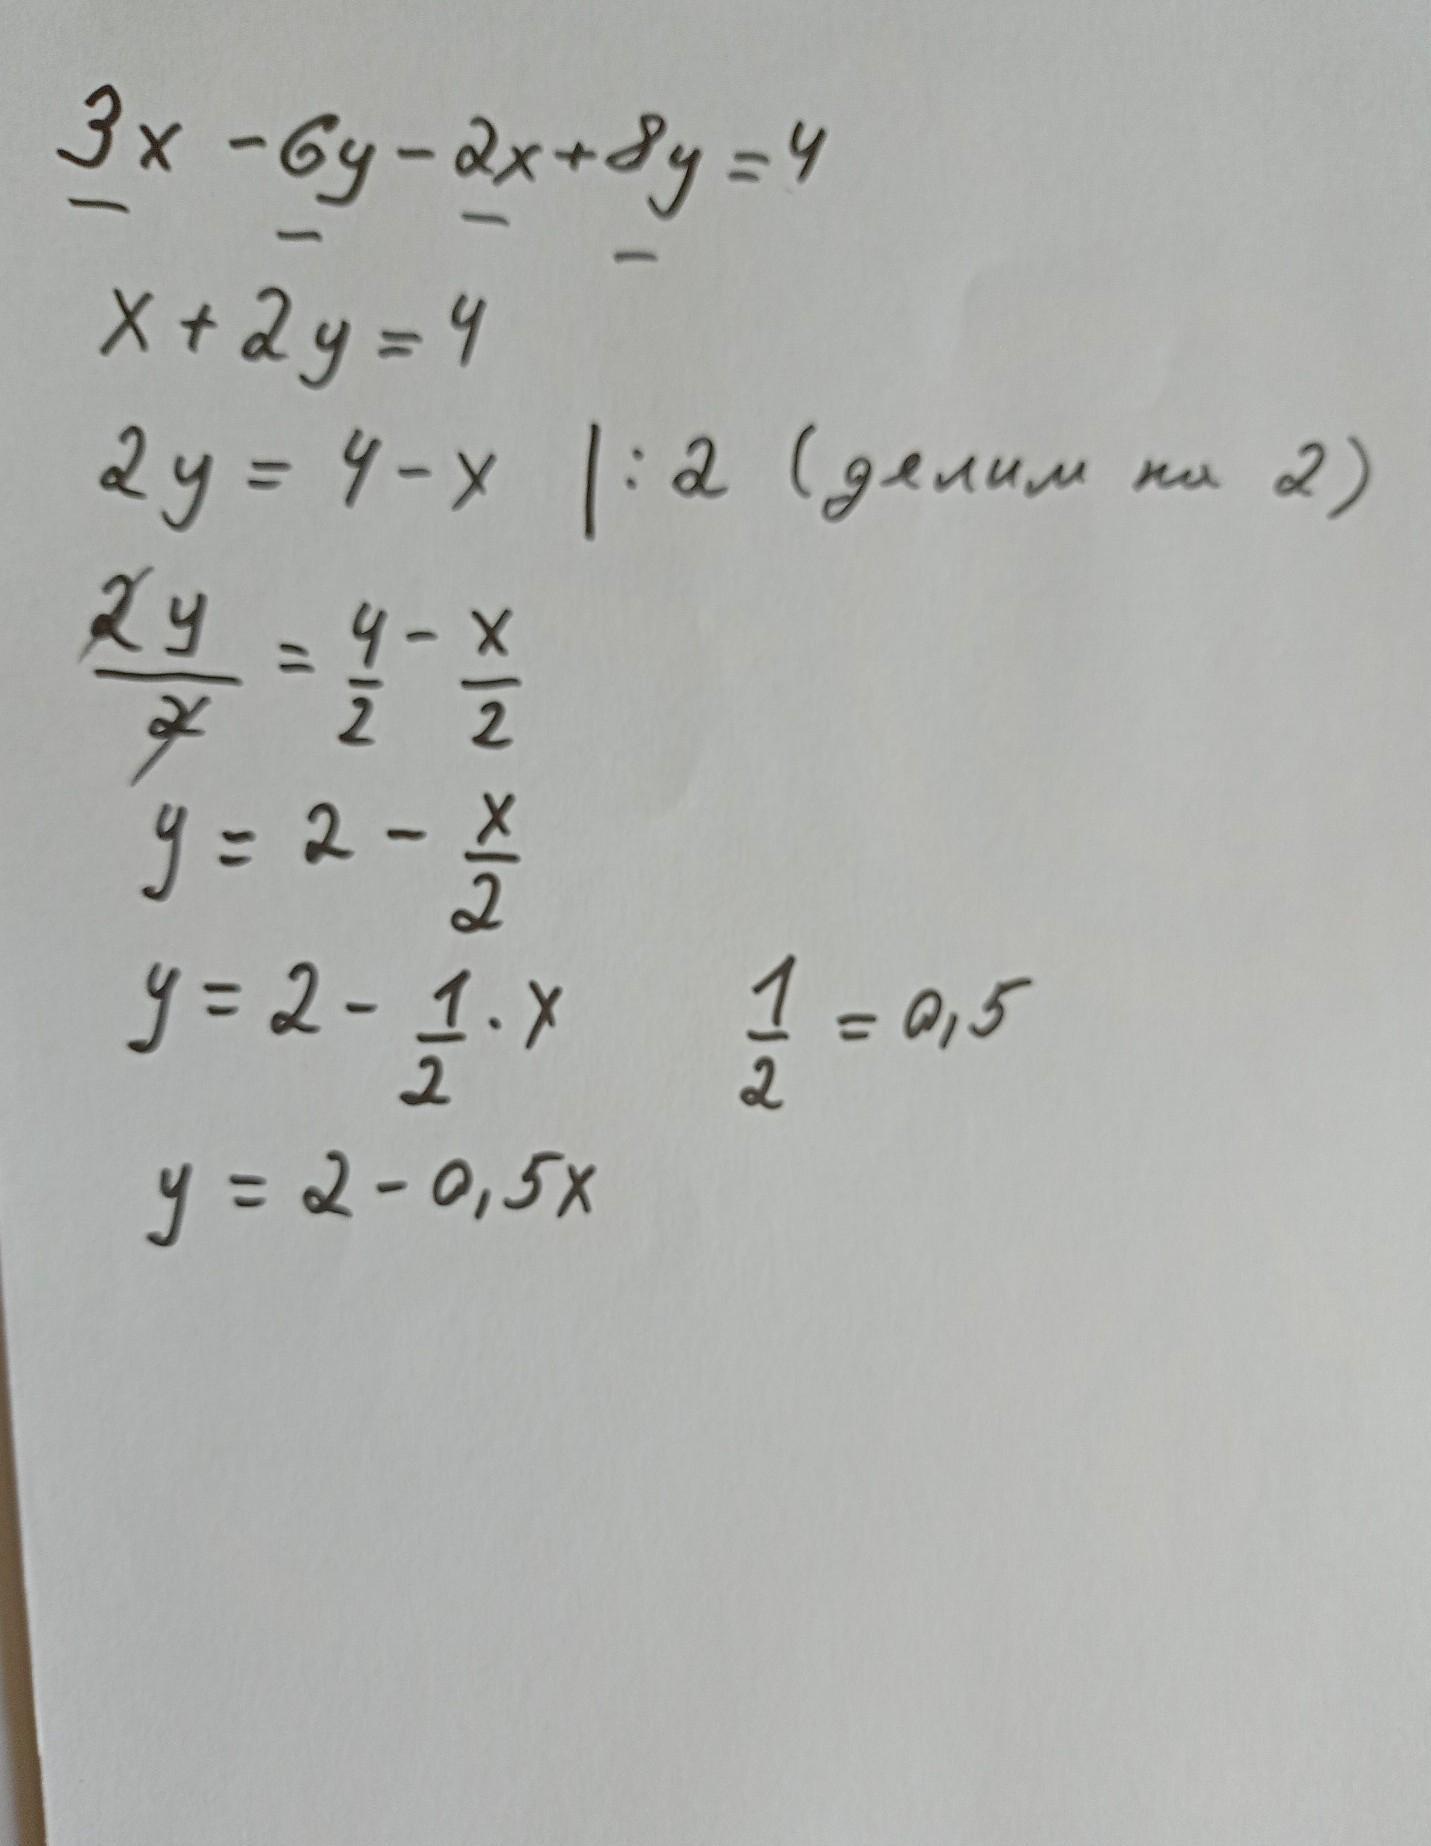 3x - 6y - 2x + 8y = 4
x + 2y = 4
2y = 4 - x | : 2 (делим на 2)
2y/2 = 4/2 - x/2
y = 2 - x/2
y = 2 - 1/2 · x    1/2 = 0,5
y = 2 - 0,5x